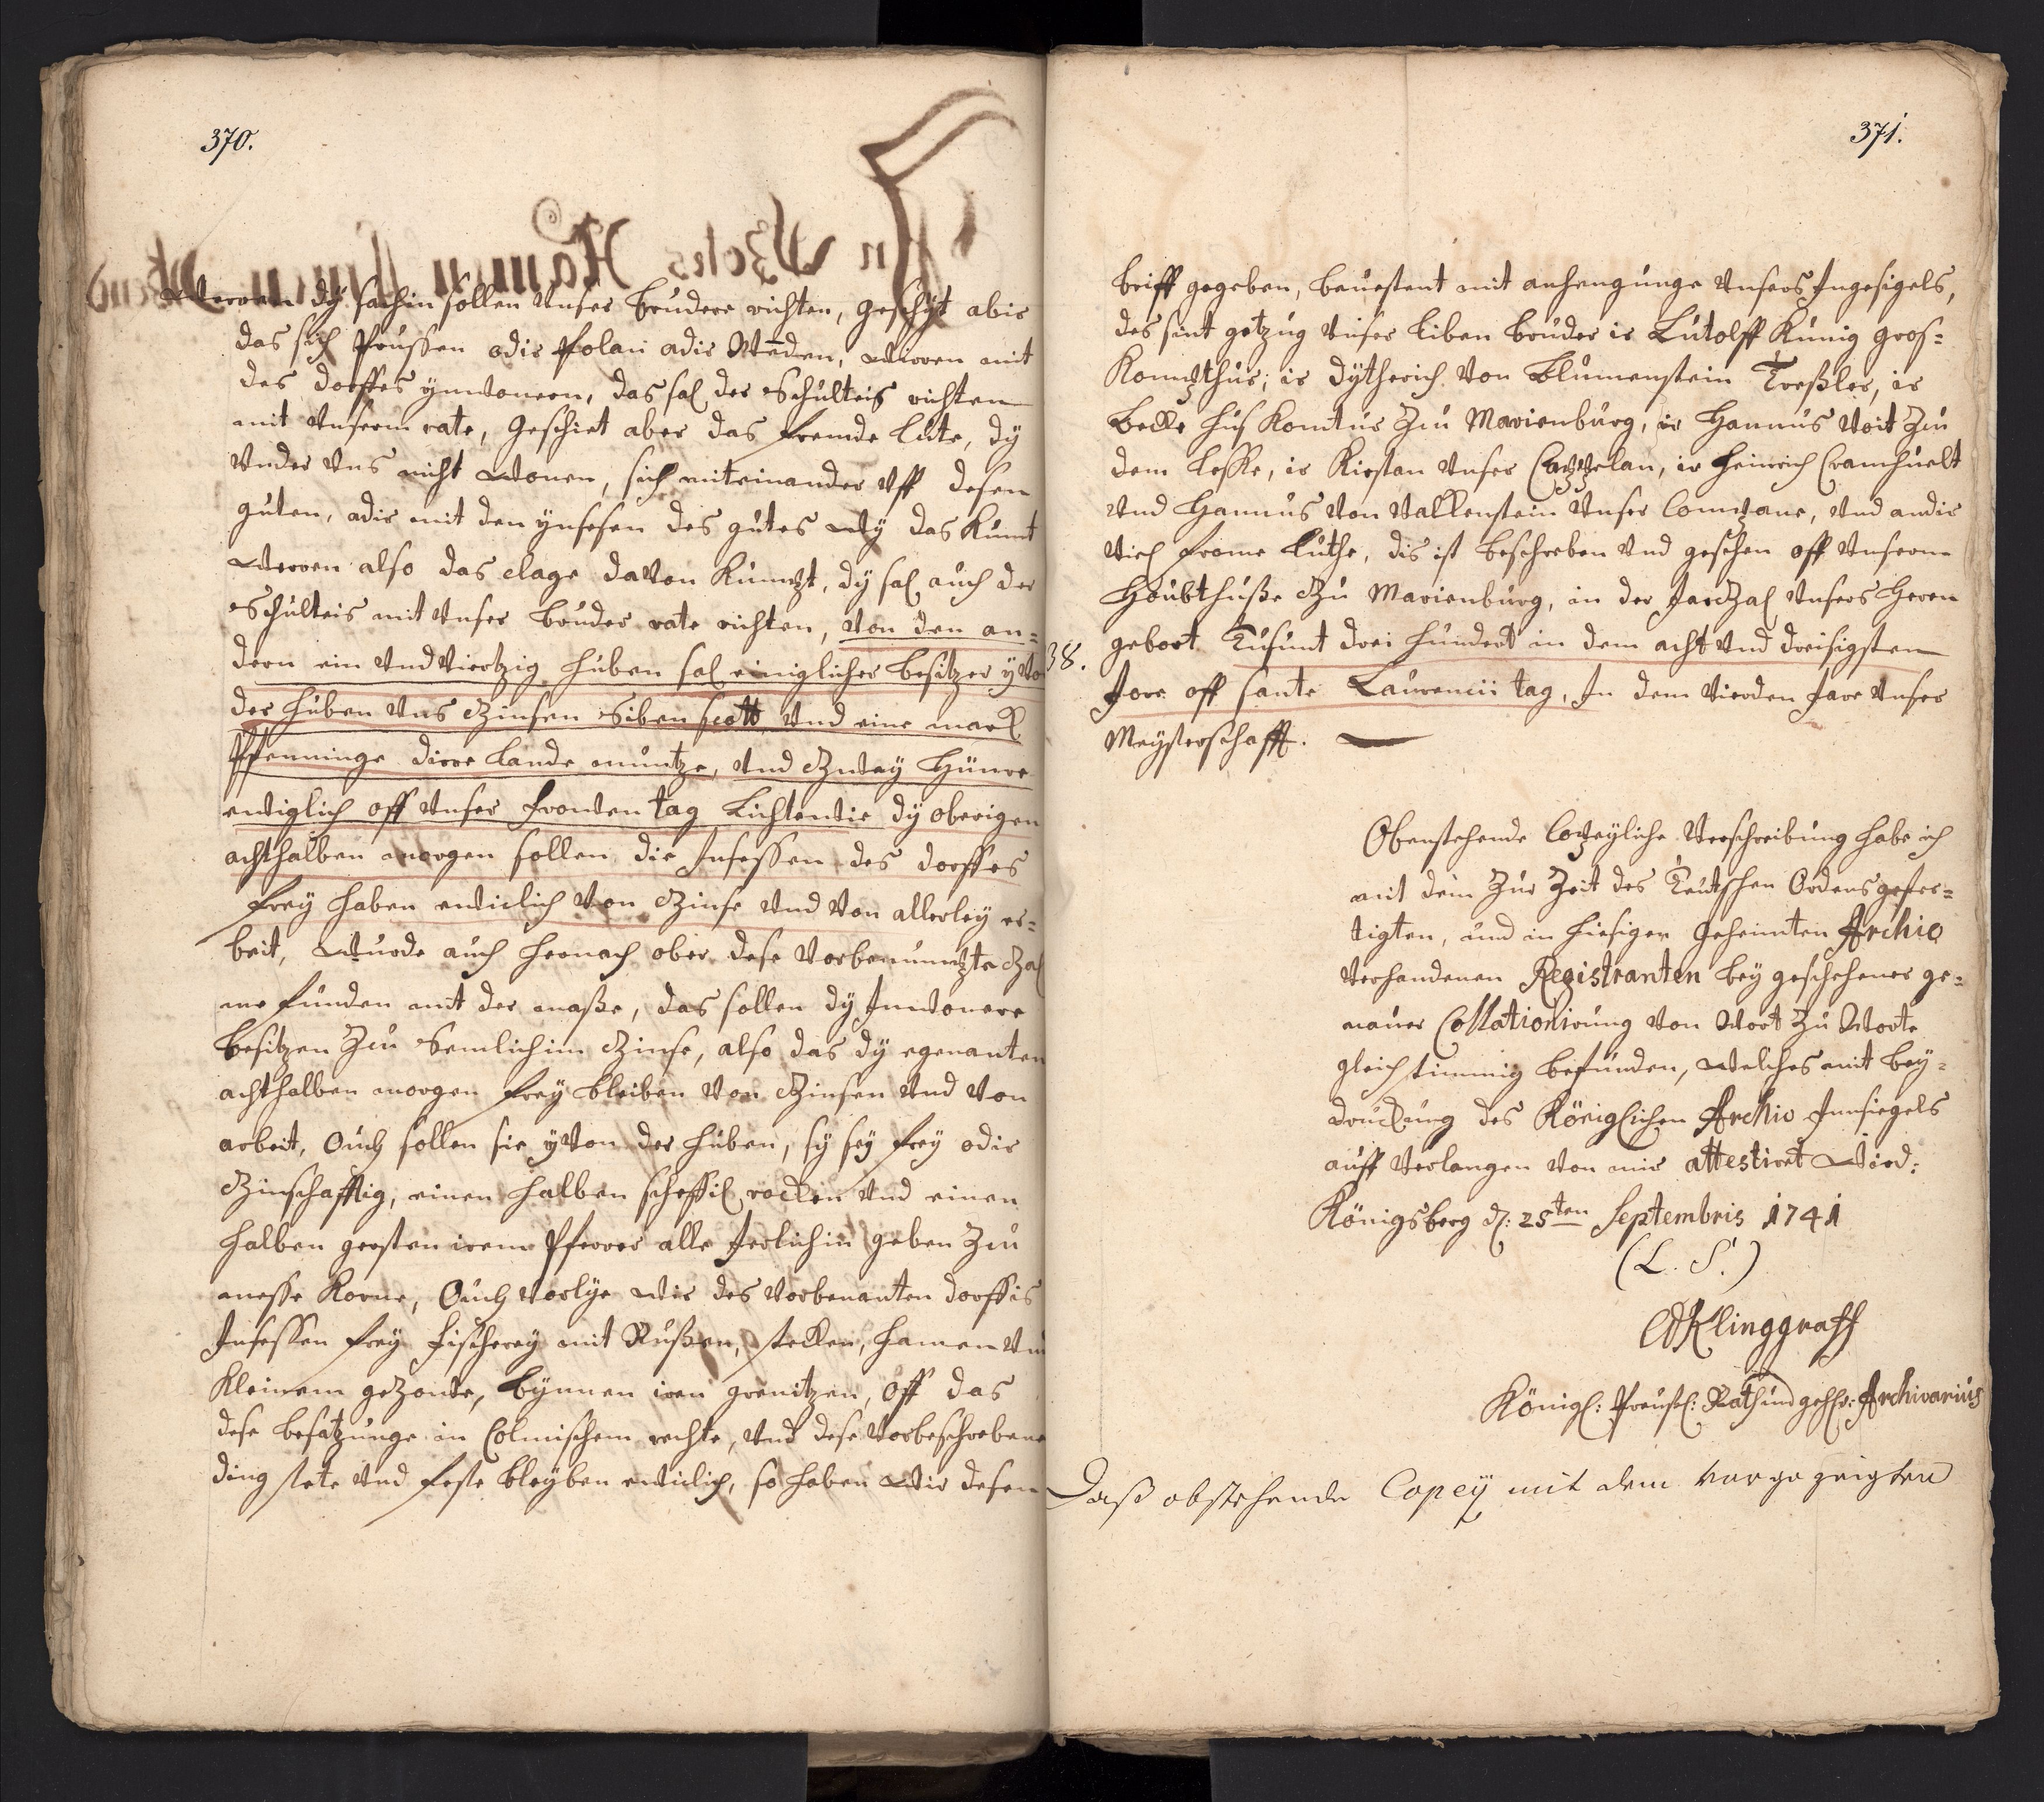 370.
Werren dÿ sachin sollen Vnser brudere richten, geschÿt abir
das sich Prussen odir Polan adir Wenden, Wirren mit
des dorffes ÿnwonern, das sal der Schulteis richten
mit Vnserm rate, geschiet aber das fremde lute, dÿ
Vnder Vns nicht Wonen, sich miteinander Vff desen
guten, adir mit den ÿnsesen des gutes Wÿ das Kumt
Werren also das clage davon Kumpt, dÿ sal auch der
Schulteis mit Vnser bruder rate richten, Von den an=
dern ein Vnd Viertzig huben sal einiglicher besitzer ÿ Vo
der huben Vns Czinsen Siben scott, Vnd eine mark
Pfenninge dirre lande muntze, Vnd Czweÿ Hünre
ewiglich off Vnser frowen tag Lichtewie dÿ oberigen
achthalben morgen sollen die Insessen des dorffes
freÿ haben ewiclich Von Czinse Vnd Von allerleÿ er=
beit, Wurde auch hernach ober dese Vorbenumpte Czal
me funden mit der masse, das sollen dÿ Inwonere
besitzen Zcu Semlichim Czinse, also das dÿ egenanten
achthalben morgen freÿ bleiben Von Czinsen Vnd Von
arbeit, Ouch sollen sie ÿ Von der huben, sÿ seÿ freÿ odir
Czinschafftig, einen halben scheffil rocken Vnd einen
halben gersten irem Pfarrer alle Jerlichin geben Zcu
messe Korne, Ouch Vorlÿe Wir des Vorbenanten dorffis
Insessen freÿ fischereÿ mit Rußen, stecken, hamen Vn
Kleinem gezoute, bÿnnen iren grenitzen, off das
dese besatzunge in Colmischem rechte, Vnd dese Vorbeschreben
ding stete Vnd feste bleÿben ewiclich, so haben Wir desen
371.
briff gegeben, beuestent mit anhengunge Vnsers Ingesigels,
des sint getzug Vnser liben bruder ir Lutolff Kunig gros=
Kompthur; ir Dÿtherich Von Blumenstein Treßler, ir
Becke hus Komtur Zcu Marienburg, ir Hannus Voit Zcu
dem Leske, ir Kirstan Vnser Cappelan, ir Heinrich Cranchuelt
Vnd Hannus Von Valkenstein Vnser Compane, Vnd andir
Viel frome luthe, dis ist beschreben Vnd geschen off Vnserm
Houbthuße Czu Marienburg, in der JarCzal Vnsers Heren
38. gebort Tusunt drei hundert in dem acht Vnd dreisigsten
Jore off sante Laurencii tag, In dem Vierden Jare Vnser
Meÿsterschafft.
Obenstehende Copeÿliche Verschreibung habe ich
mit dem Zur Zeit des Teutschen Ordens gefer=
tigten, und in hiesigen Geheimten Archiv
Verhandenen Registranten beÿ geschehener ge=
nauer Collationirung Von Wort Zu Worte
gleich stimmig befunden, welches mit beÿ=
druckung des Königlichen Archiv Innsiegels
auff Verlangen Von mir attestiret Wird.
Königsberg d: 25ten Septembris 1741
(L. S.)
Klinggraff
Königl: Preuß: Rath und geh: Archivarius
Daß obstehende Copeÿ mit dem vorgezeigten